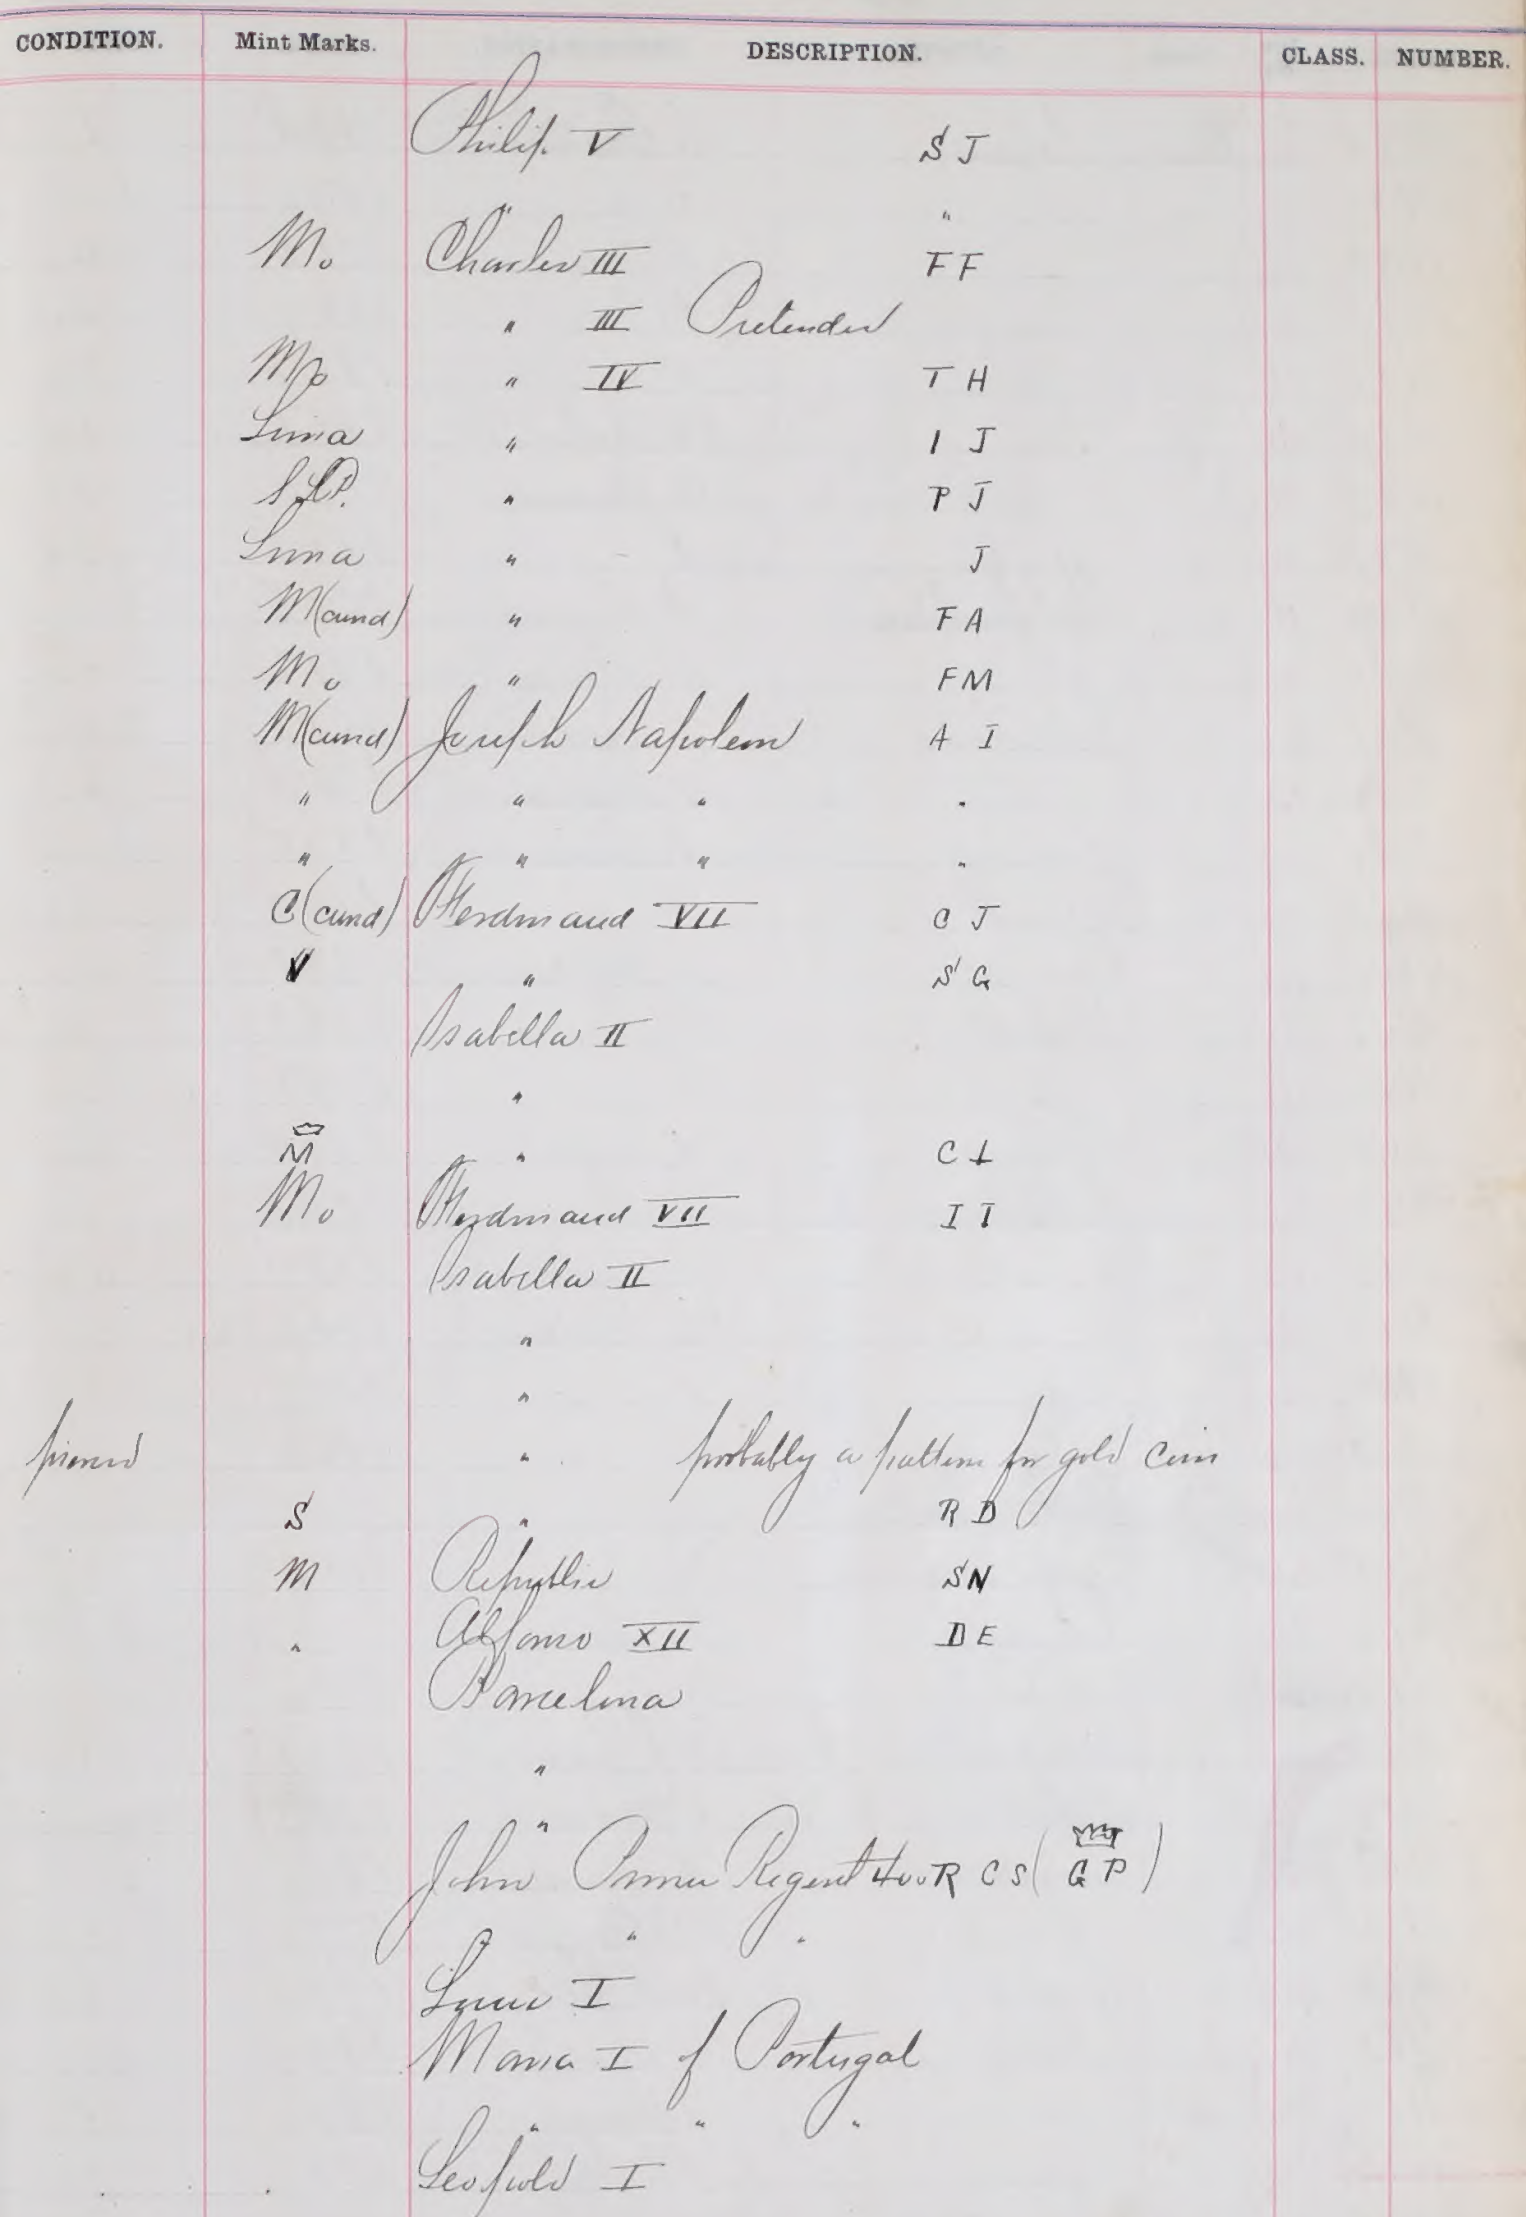 CONDITION. Mint Marks. DESCRIPTION. CLASS. NUMBER.
Philip V S J
" "
Mo Charles III F F
" III Pretender
Mo " IV T H
Lima " I J
" P J
Lima " J
M(cund) " F A
Mo " F M
M(cund) Joseph Napoleon A I
" " " "
" " " "
C(cund) Ferdinand VII C J
V " S G
Isabella II
"
M " C L
Mo Ferdinand VII I I
Isabella II
"
"
pierced " probably a pattern for gold coin
S " R D
M Republic S N
" Alfonso XII D E
Barcelona
"
"
John Prince Regent 400 R C S ( G P )
" "
Louis I
Maria I of Portugal
" " "
Leopold I